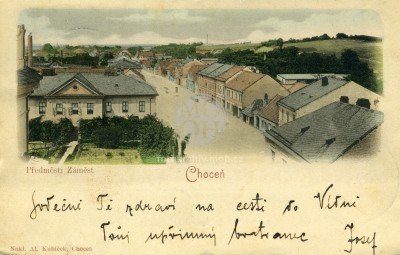 Předměstí Zaměst
Choceň
Srdečně Tě zdraví na cestě do
Tvůj upřímný bratranec Josef
Nákl. Al. Kubíček, Choceň